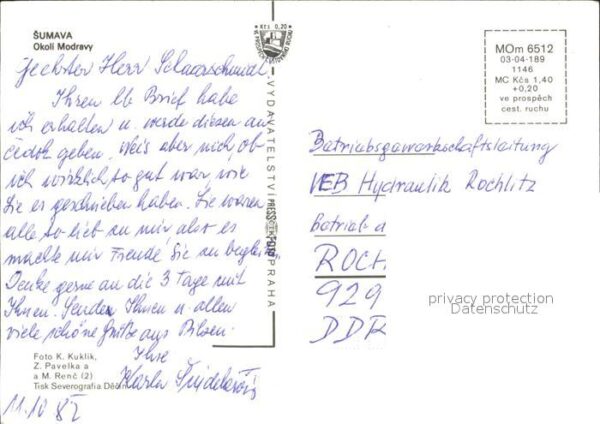 ŠUMAVA
Okolí Modravy
Herr
Ihren lb Brief habe
ich erhalten u. werde diesen an
Čedok geben. Weis aber nicht, ob
ich wirklich so gut war wie
Sie es geschrieben haben. Sie waren
alle so lieb zu mir, also es
machte mir Freude Sie zu begleiten.
Denke gerne an die 3 Tage mit
Ihnen. Sende Ihnen u. allen
viele schöne Grüße aus Pilsen.
Ihre
Karla
Foto K. Kuklík,
Z. Pavelka a
a M. Renč (2)
Tisk Severografia Děčín
11.10 82
Kčs 0,20
VYDAVATELSTVÍ PRESSFOTO PRAHA
MOm 6512
03-04-189
1146
MC Kčs 1,40
+0,20
ve prospěch
cest. ruchu
Betriebsgewerkschaftsleitung
VEB Hydraulik Rochlitz
Betrieb d
ROCH
929
DDR
privacy protection
Datenschutz